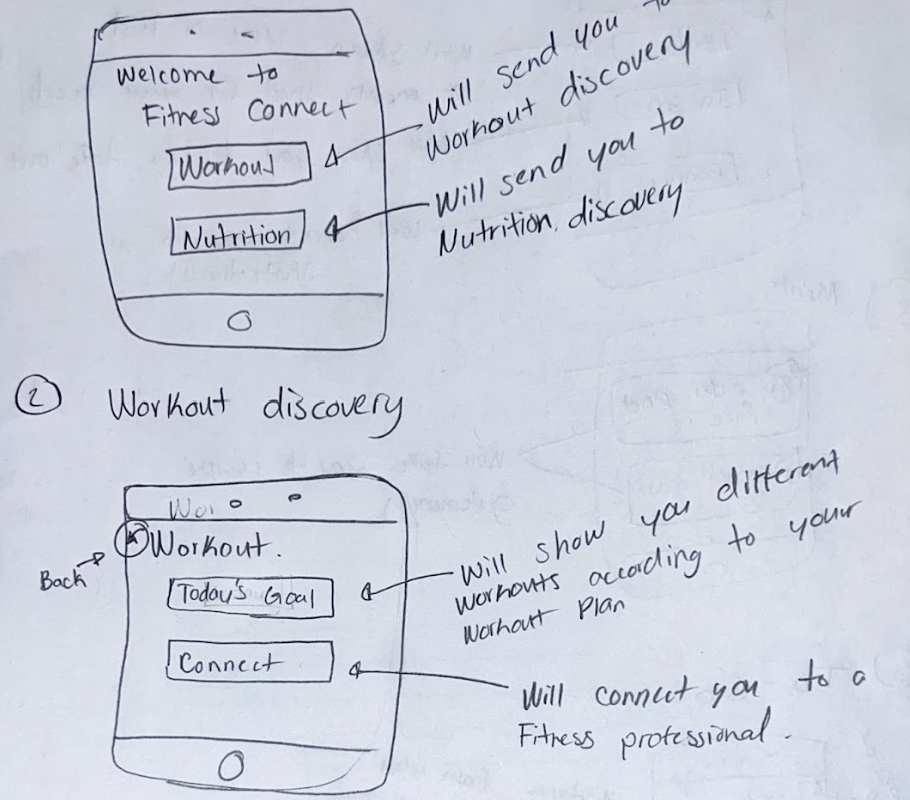 Welcome to
Fitness Connect
Workout
Nutrition
Will send you to
Workout discovery
Will send you to
Nutrition discovery
2 Workout discovery
Wor
Workout.
Back
Today's Goal
Connect
Will show you different
workouts according to your
workout Plan
Will connect you to a
Fitness professional.